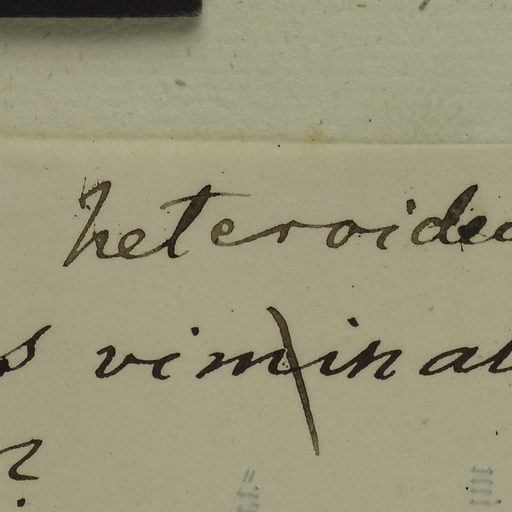 heteroide
s viminal
?